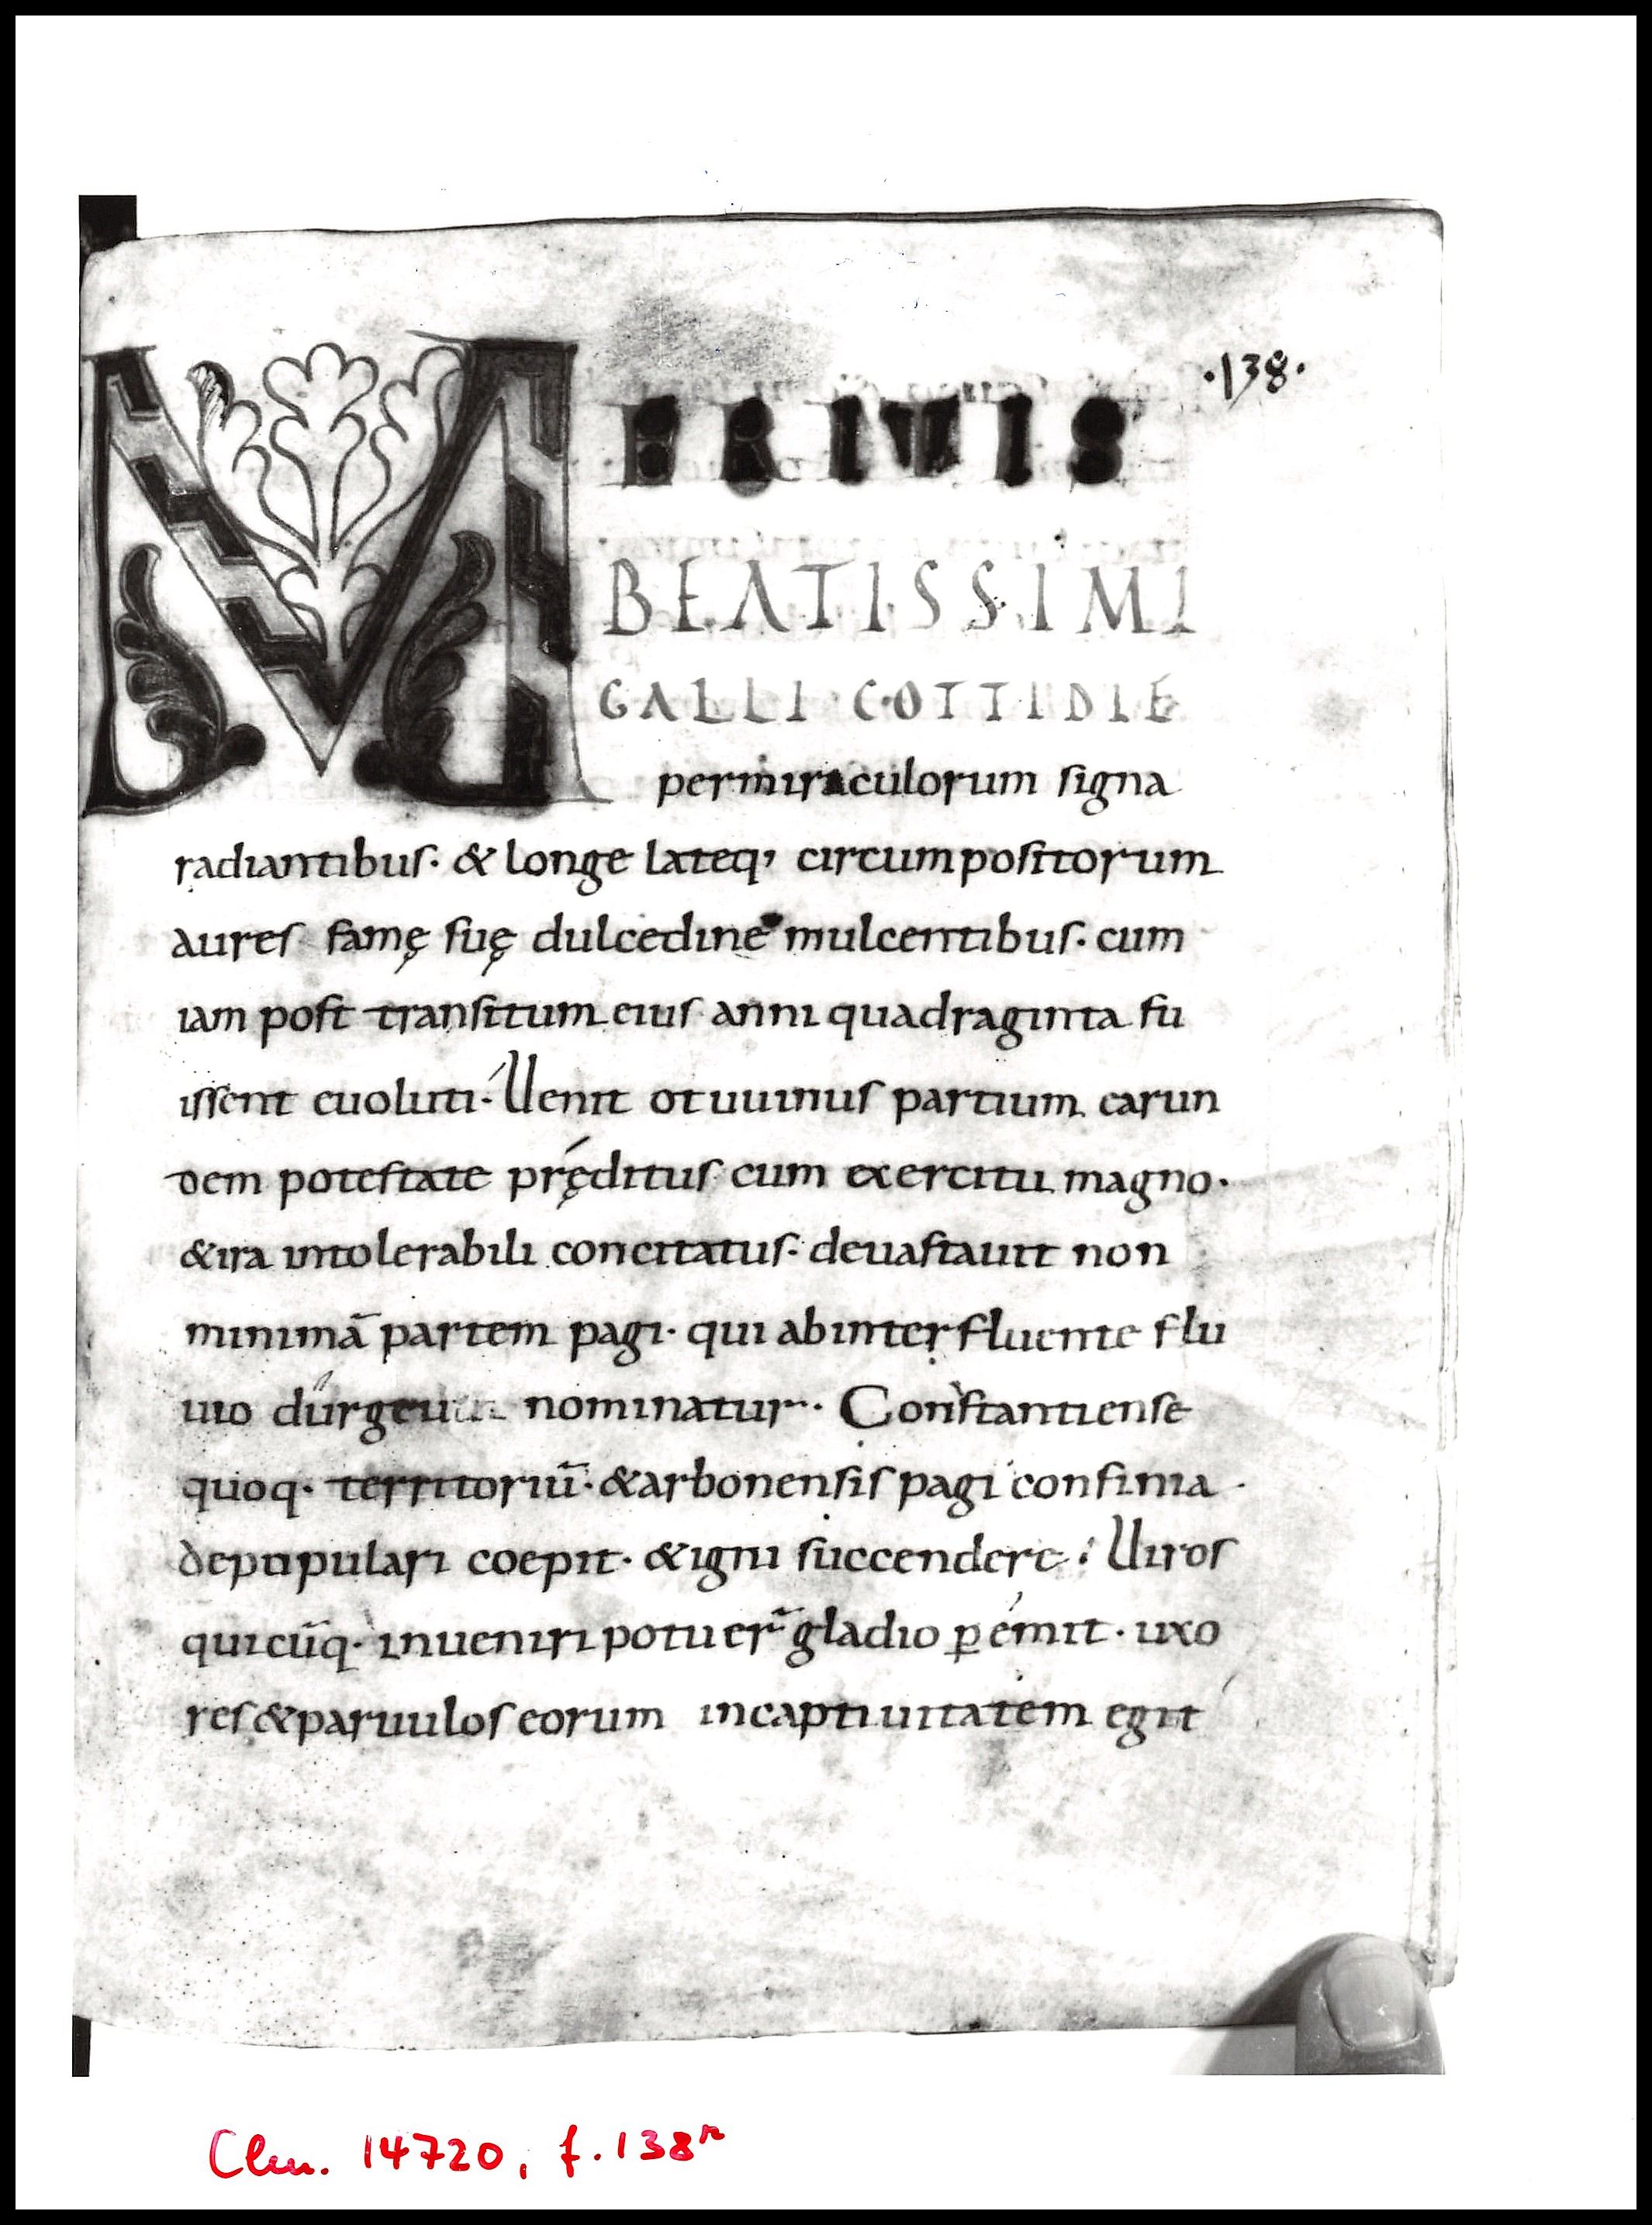 ·138·
MERITIS
BEATISSIMI
GALLI COTTIDIE
permiraculorum signa
radiantibus· & longe lateq; circumpositorum
aures famę suę dulcedine mulcentibus· cum
iam post transitum eius anni quadraginta fu
issent euoluti· Uenit otuuinus partium earun
dem potestate pręditus cum exercitu magno·
&ira intolerabili concitatus· deuastauit non
minimā partem pagi· qui abinterfluente flu
uio durgeuui nominatur· Constantiense
quoq· territoriū· &arbonensis pagi confinia
depopulari coepit· &igni succendere; Uiros
quicūq· inueniri potuer̄ gladio ꝑemit· uxo
res&paruulos eorum incaptiuitatem egit
Clm. 14720, f. 138r